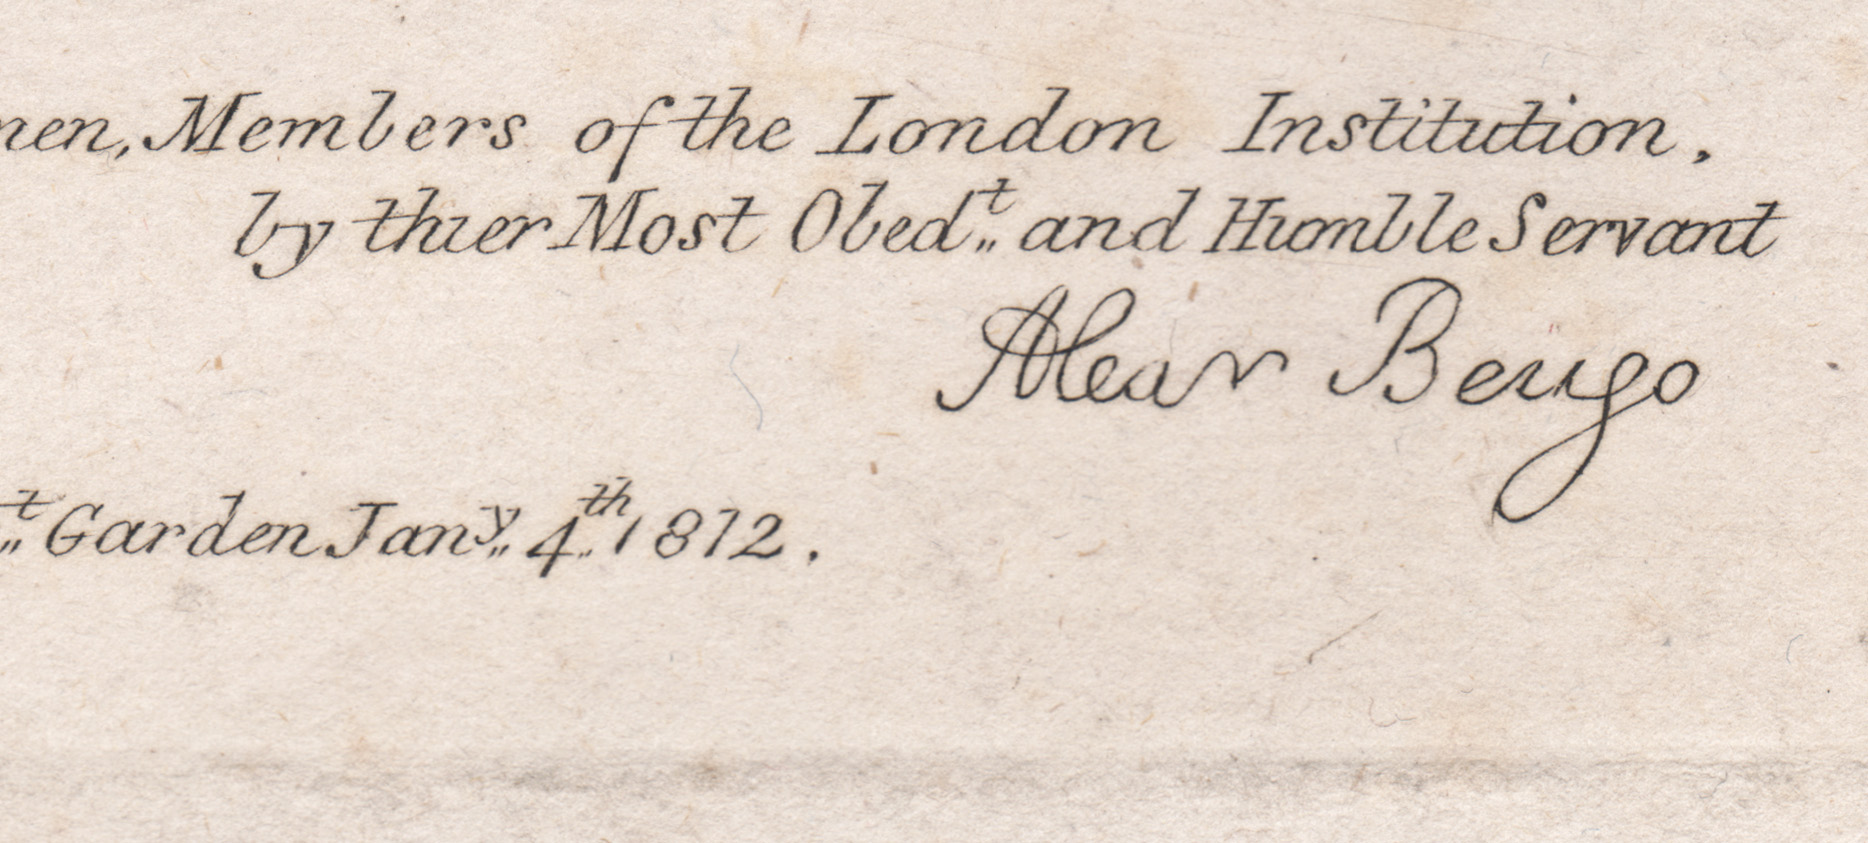 nen, Members of the London Institution.
by thier Most Obed.t and Humble Servant
Alexr Beugo
t Garden Jany. 4th. 1812.